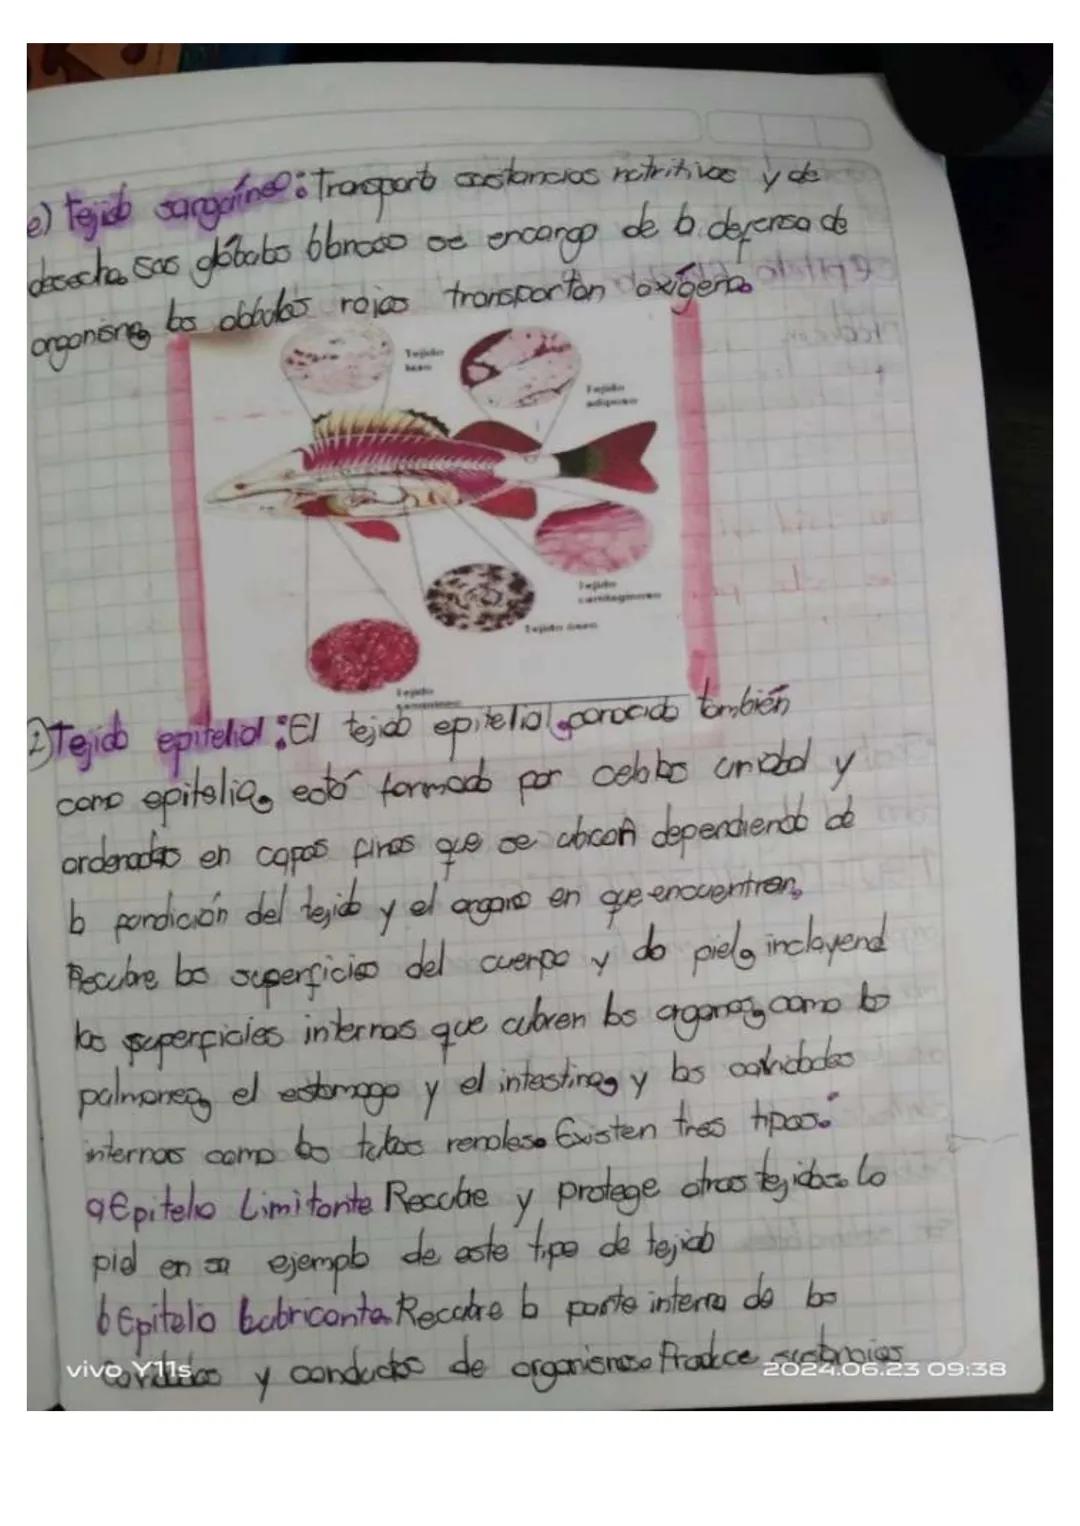 e) Tejido sanguíneo: Transporta sustancias nutritivas y de
desecho, sus glóbulos blancos se encarga de la defensa de
organismo, los globulos rojos transportan oxígeno.
Tejido
Tejido
adiposo
Tejido
cartilaginoso
Tejido óseo
Tejido
sanguíneo
2) Tejido epitelial: El tejido epitelial, conocido también
como epitelio, está formado por celulas unidad y
ordenadas en capas finas que se ubican dependiendo de
la condición del tejido y el organo en que encuentren.
Recubre las superficies del cuerpo y de piel, incluyend
las superficies internas que cubren los organos, como los
pulmones, el estomago y el intestino, y las cavidades
internas como los tubos renales. Existen tres tipos:
a Epitelio Limitante Recubre y protege otros tejidos. La
piel en un ejemplo de este tipo de tejido
b Epitelio Lubricante. Recubre la parte interna de las
cavidades y conductos de organismos. Produce sustancias
vivo Y11s
2024.06.23 09:38